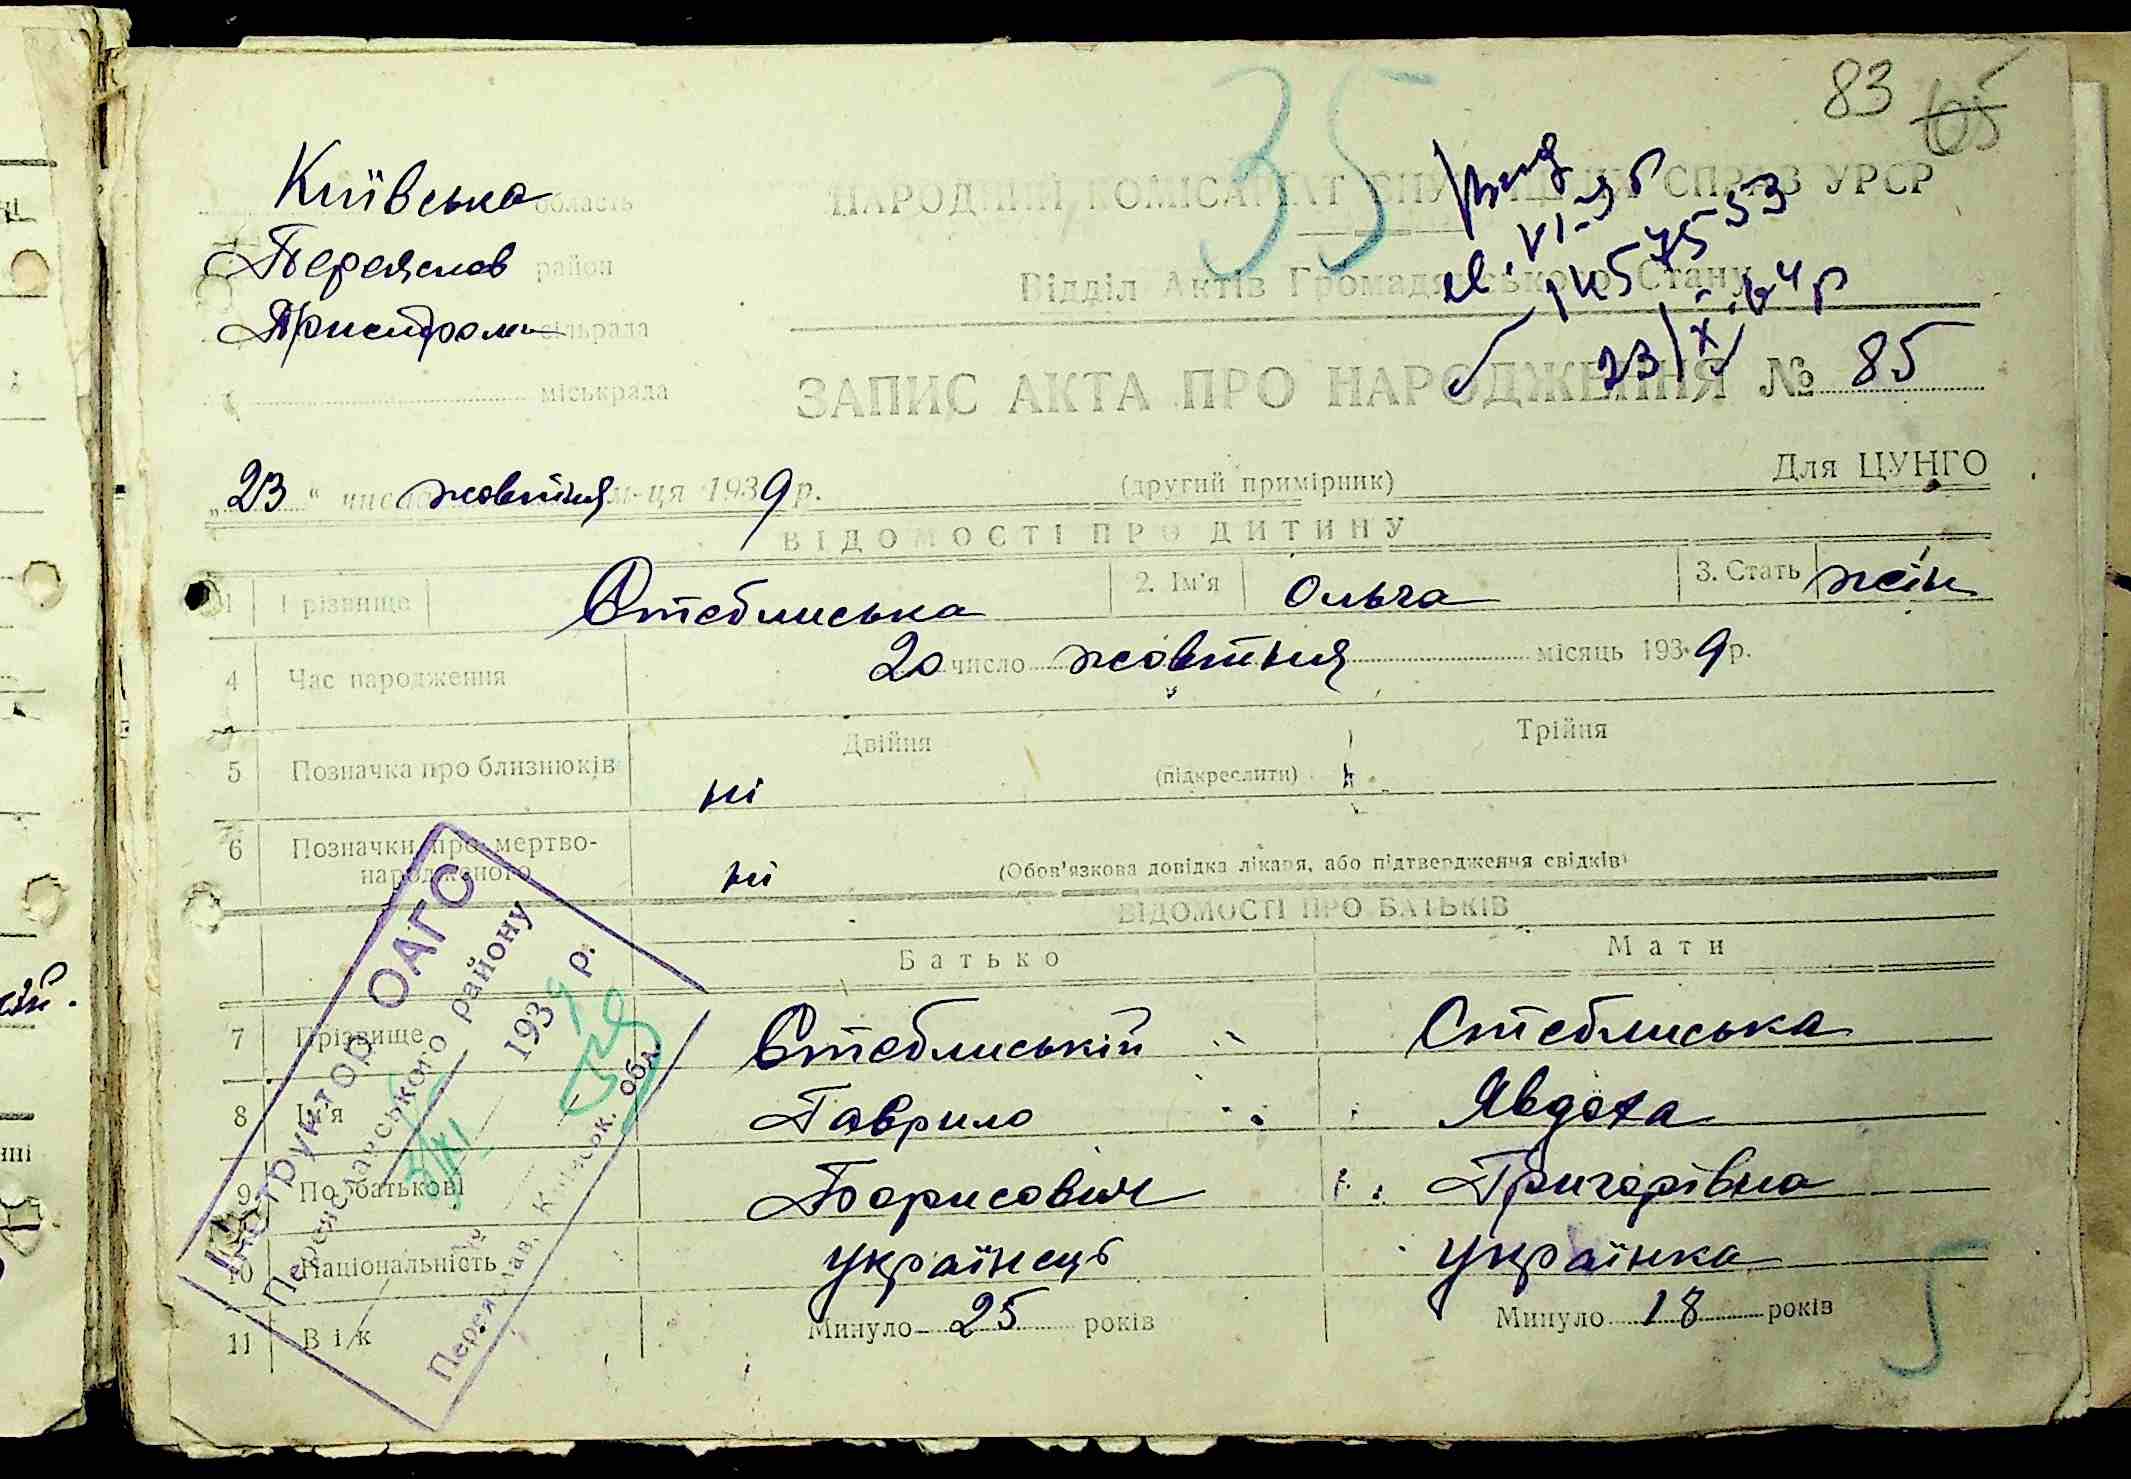 83 65
35
Київська область
Переяслав район
Пристроми сільрада
міськрада
НАРОДНІЙ КОМІСАРІАТ ВНУТРІШНІХ СПРАВ УРСР
Відділ Актів Громадянського Стану
23/X
ЗАПИС АКТА ПРО НАРОДЖЕННЯ № 85
„23“ числа жовтня м-ця 1939 р.
(другий примірник)
Для ЦУНГО
ВІДОМОСТІ ПРО ДИТИНУ
1 Прізвище Стеблиська 2. Ім'я Ольга 3. Стать жін
4 Час народження 20 число жовтня місяць 1939 р.
5 Позначка про близнюків ні Двійня (підкреслити) Трійня
6 Позначки про мертво-
народженого ні (Обов'язкова довідка лікаря, або підтвердження свідків)
ВІДОМОСТІ ПРО БАТЬКІВ
Батько Мати
7 Прізвище Стеблиській Стеблиська
8 Ім'я Гаврило Явдоха
9 По батькові Борисович Григорівна
10 Національність українець українка
11 Вік Минуло 25 років Минуло 18 років
Інструктор ОАГО
Переяславського району
1939 р.
№
Переяслав, Київськ. обл.
5